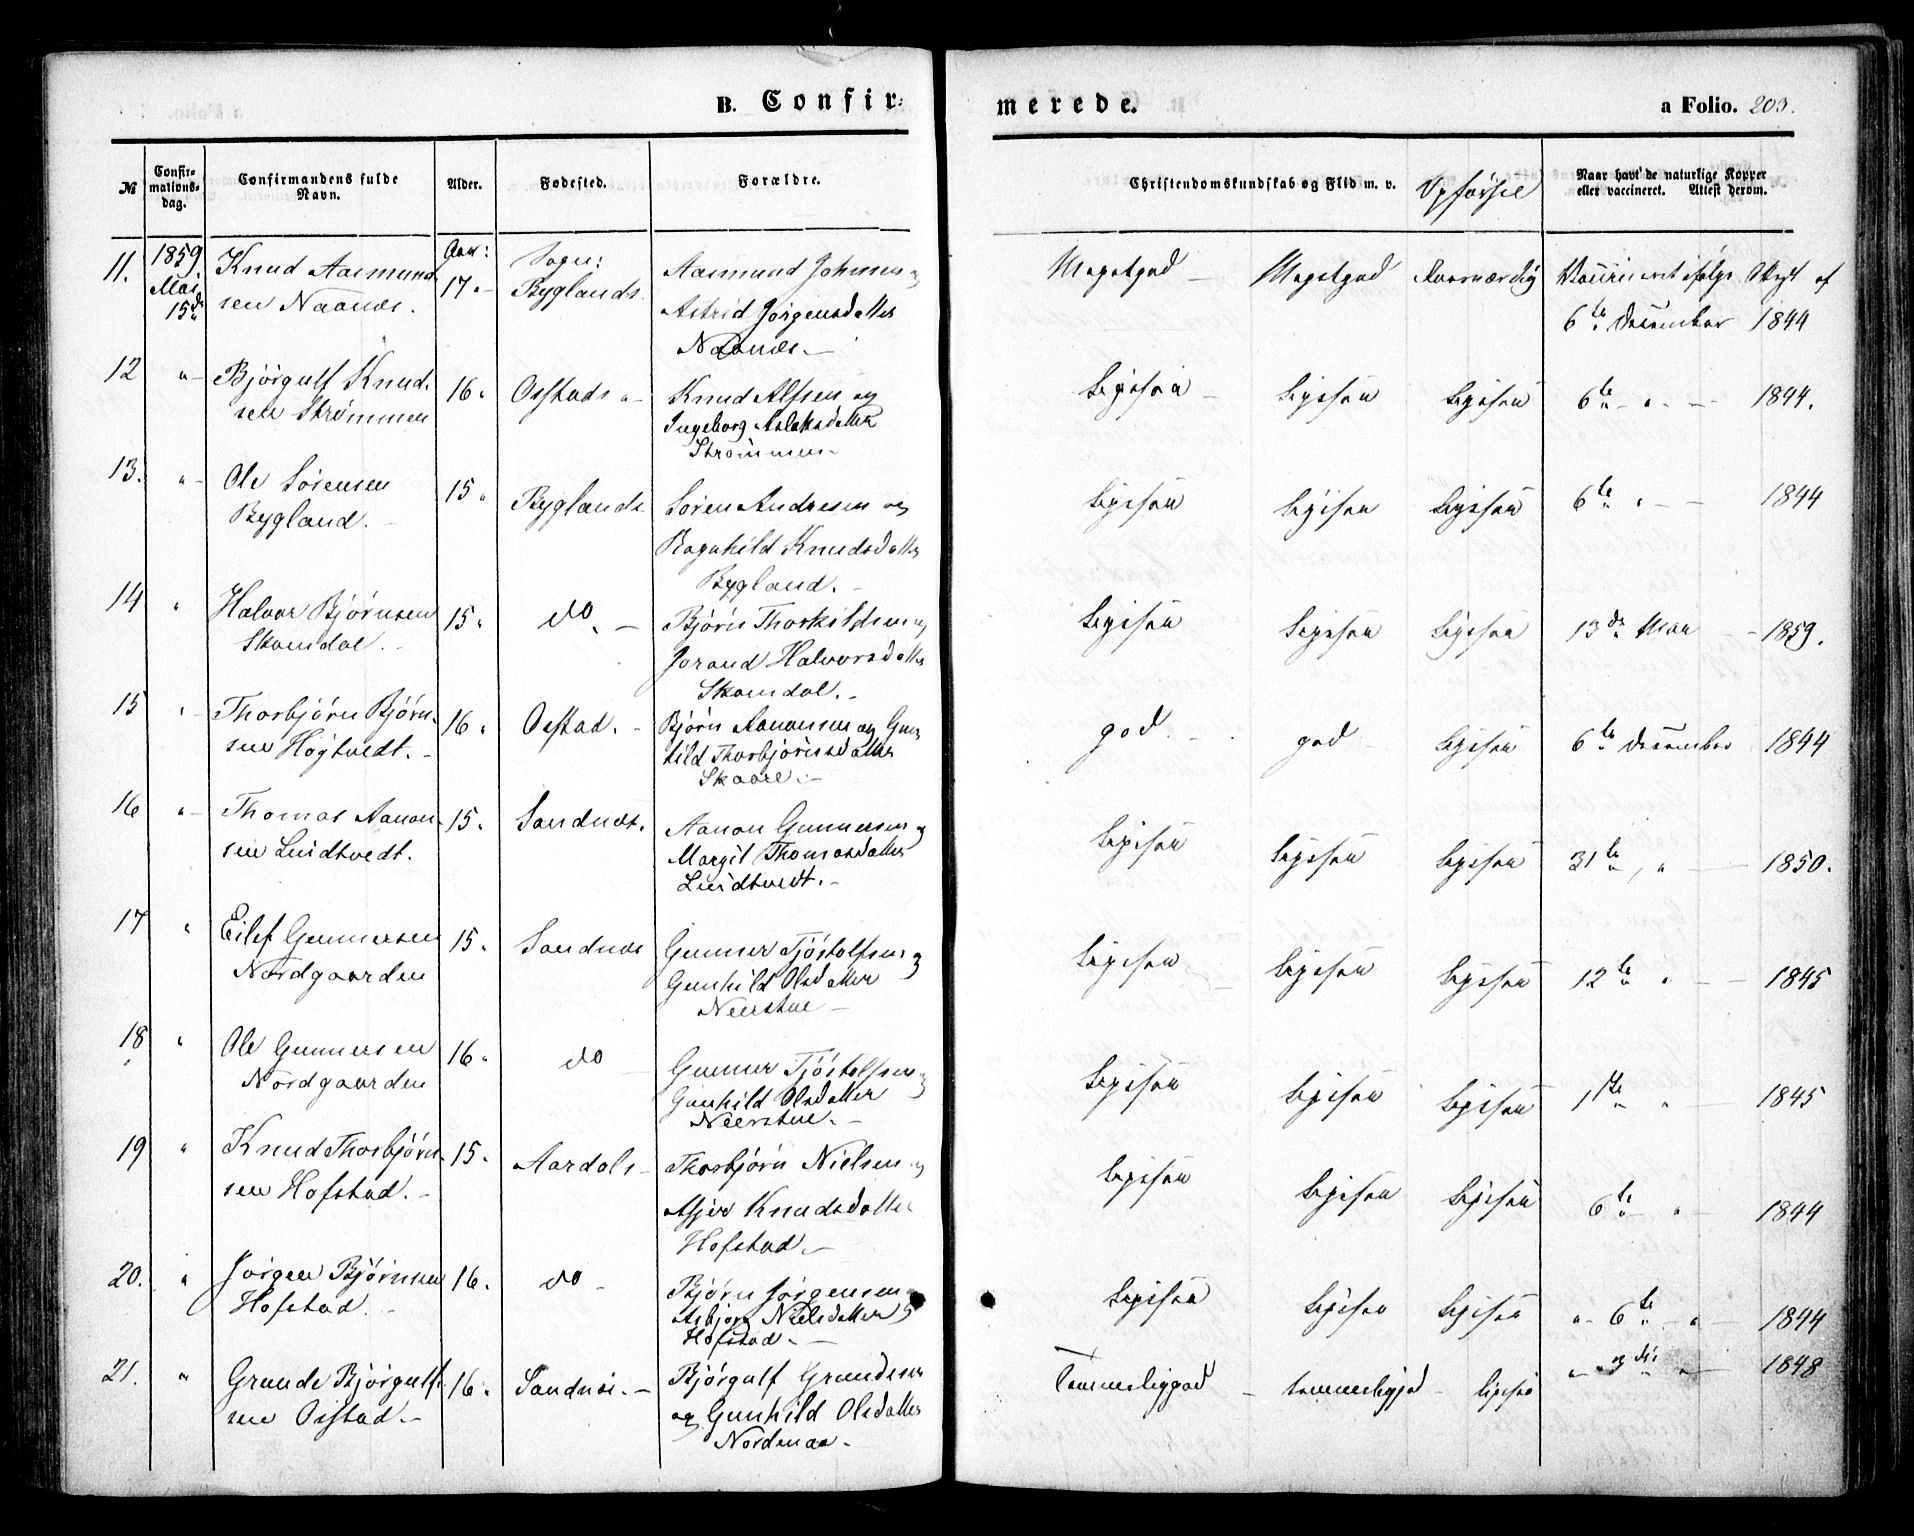 B. Confir=
merede.
a Folio. 203.
№
Confir-
mations-
dag.
Confirmandens fulde
Navn.
Alder.
Fødested.
Forældre.
Christendomskundskab og Flid m. v.
Opførsel
Naar havt de naturlige Kopper
eller vaccineret. Attest derom.
11. 1859. Mai 15de Knud Aasmund Aar: Sogn: Aasmund
sen Naanes. 17 " Byglands Astrid Jørgensdatter
Naanes.
Megetgod Megetgod
6te December 1844
12 " Bjørgulf Knud- 16 " Knud Alfsen og
sen Strømmen Ingeborg Aslaksdatter
Strømmen
Ligesaa Ligesaa Ligesaa 6te " 1844.
13. " Ole Sørensen 15 " Byglands Søren Andresen og
Bygland. Ragnhild Knudsdatter
Bygland.
Ligesaa Ligesaa Ligesaa 6te " 1844
14 " Halvor Bjørnsen 15 " do Bjørn Thorkildsen og
Skomdal. Jorand Halvorsdatter
Skomdal.
Ligesaa Ligesaa Ligesaa 13de Mai 1859.
15 " Thorbjørn Bjørn- 16 " Bjørn Aanonsen og Gun
sen Høgtvedt. hild Thorbjørnsdatter
Skaare.
god god Ligesaa 6te December 1844
16 " Thomas Aanon- 15 " Sandnes. Aanon Gunnersen og
sen Lindtvedt. Margit Thomasdatter
Lindtvedt.
Ligesaa Ligesaa Ligesaa 31te " 1850.
17 " Eilef Gunnersen 15 " Sandnes Gunner Tjøstolfsen og
Nordgaarden Gunhild Olsdatter
Neerstue
Ligesaa Ligesaa Ligesaa 12te " 1845
18 " Ole Gunnersen 16 " do Gunner Tjøstolfsen og
Nordgaarden Gunhild Olsdatter
Neerstue.
Ligesaa Ligesaa Ligesaa 1ste " 1845
19 " Knud Thorbjørn- 15 " Aardals Thorbjørn Nielsen og
sen Hofstad. Knudsdatter
Hofstad.
Ligesaa Ligesaa Ligesaa 6te " 1844
20. " Jørgen Bjørnsen 16. do Bjørn Jørgensen og
Hofstad. Nielsdatter
Hofstad.
Ligesaa Ligesaa Ligesaa " 6te " 1844
21. " Grunde Bjørgulf- 16. Sandnes. Bjørgulf Grundesen
sen og Gunhild Olsdatter
Nordenaa.
Temmeliggod ligesaa " 3die " 1848